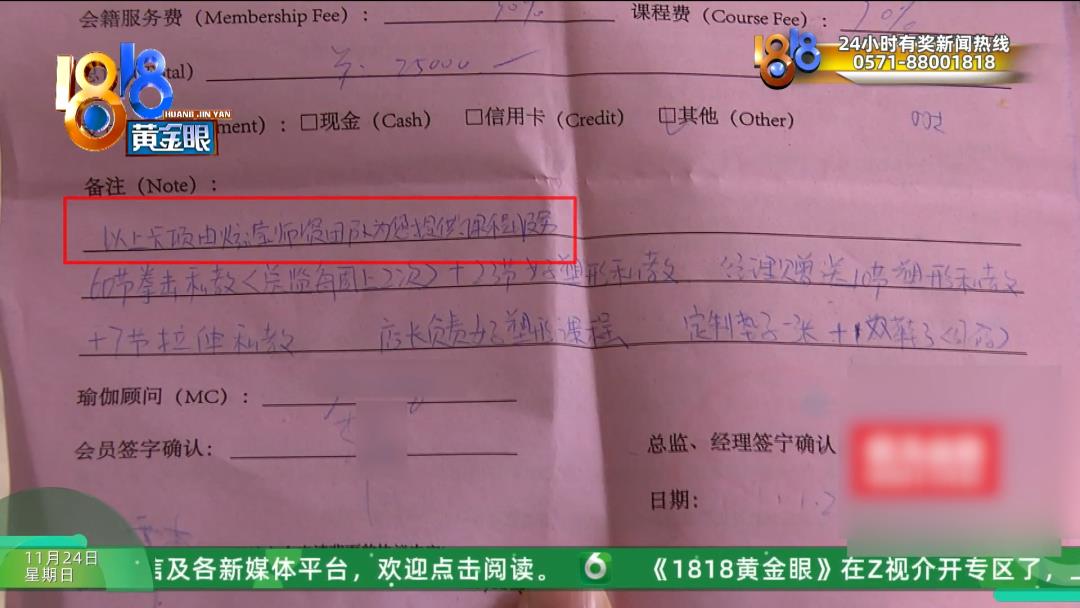 会籍服务费（Membership Fee）： 90% 课程费（Course Fee）： 10%
24小时有奖新闻热线
1818
0571-88001818
1818
tal) 25000
HUANG JIN YAN
黄金眼
ment）：□现金（Cash） □信用卡（Credit） □其他（Other）
备注（Note）：
以上卡项由炫宝师资团队为您提供课程服务
60节拳击私教<总监每周上2次>+23节 塑形私教 经理赠送10节塑形私教
+7节拉伸私教 店长负责好塑形课程 定制垫子一张+1双鞋子
瑜伽顾问（MC）：
会员签字确认：
总监、经理签字确认
日期：
11月24日
星期日
信及各新媒体平台，欢迎点击阅读。 6 《1818黄金眼》在Z视介开专区了，